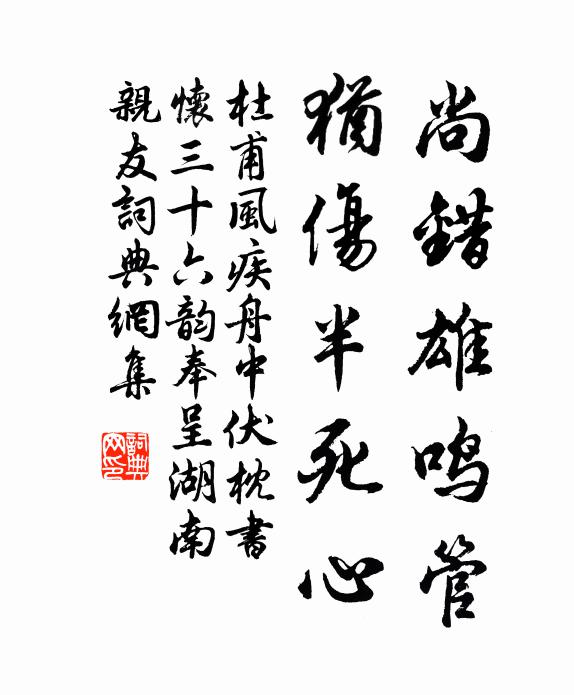 尚錯雄鳴管
猶傷半死心
杜甫風疾舟中伏枕書
懷三十六韵奉呈湖南
親友詞典網集
詞典
网印